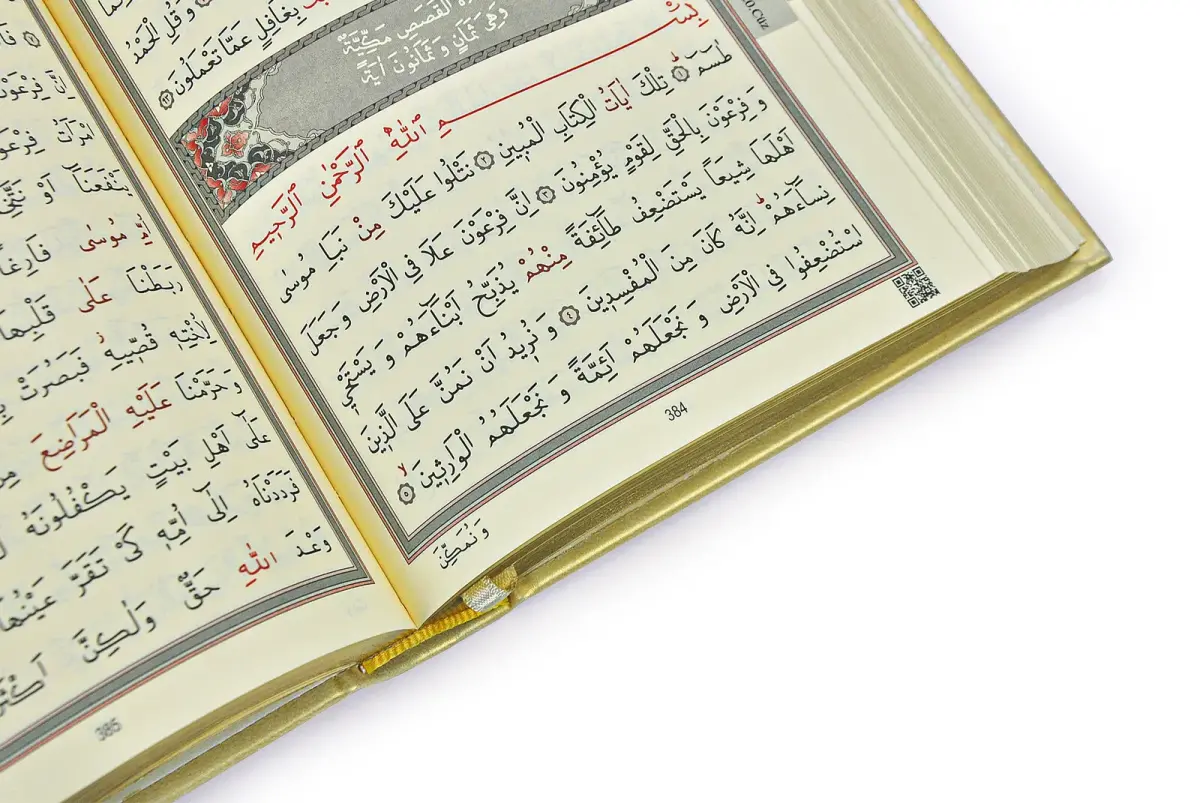 وَقُلِ الْحَمْدُ
بِغَافِلٍ عَمَّا تَعْمَلُونَ ٩٣
الْقَصَصِ مَكِّيَّةٌ
وَهِيَ ثَمَانٍ وَ ثَمَانُونَ اٰيَةً
بِسْمِ اللّٰهِ الرَّحْمٰنِ الرَّحِيمِ
طٰسٓمٓ ١ تِلْكَ اٰيَاتُ الْكِتَابِ الْمُبِينِ ٢ نَتْلُوا عَلَيْكَ مِنْ نَبَاِ مُوسٰى
وَ فِرْعَوْنَ بِالْحَقِّ لِقَوْمٍ يُؤْمِنُونَ ٣ اِنَّ فِرْعَوْنَ عَلَا فِى الْاَرْضِ وَ جَعَلَ
اَهْلَهَا شِيَعًا يَسْتَضْعِفُ طَٓائِفَةً مِنْهُمْ يُذَبِّحُ اَبْنَٓاءَهُمْ وَ يَسْتَحْيٖ
نِسَٓاءَهُمْ اِنَّهُ كَانَ مِنَ الْمُفْسِدِينَ ٤ وَ نُرِيدُ اَنْ نَمُنَّ عَلَى الَّذِينَ
اسْتُضْعِفُوا فِى الْاَرْضِ وَ نَجْعَلَهُمْ اَئِمَّةً وَ نَجْعَلَهُمُ الْوَارِثِينَ ٥
وَ نُمَكِّنَ
384
اِنَّ فِرْعَوْنَ
يَنْفَعَنَٓا اَوْ
مُوسٰى فَارِغًا
رَبَطْنَا عَلٰى قَلْبِهَا
لِاُخْتِهٖ قُصّٖيهِ فَبَصُرَتْ
وَ حَرَّمْنَا عَلَيْهِ الْمَرَاضِعَ
عَلٰٓى اَهْلِ بَيْتٍ يَكْفُلُونَهُ
فَرَدَدْنَاهُ اِلٰٓى اُمِّهٖ كَىْ تَقَرَّ عَيْنُهَا
وَعْدَ اللّٰهِ حَقٌّ وَلٰكِنَّ
385